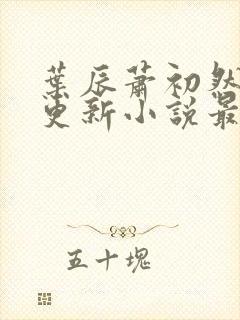 葉辰蕭初然
更新小說最
五十塊